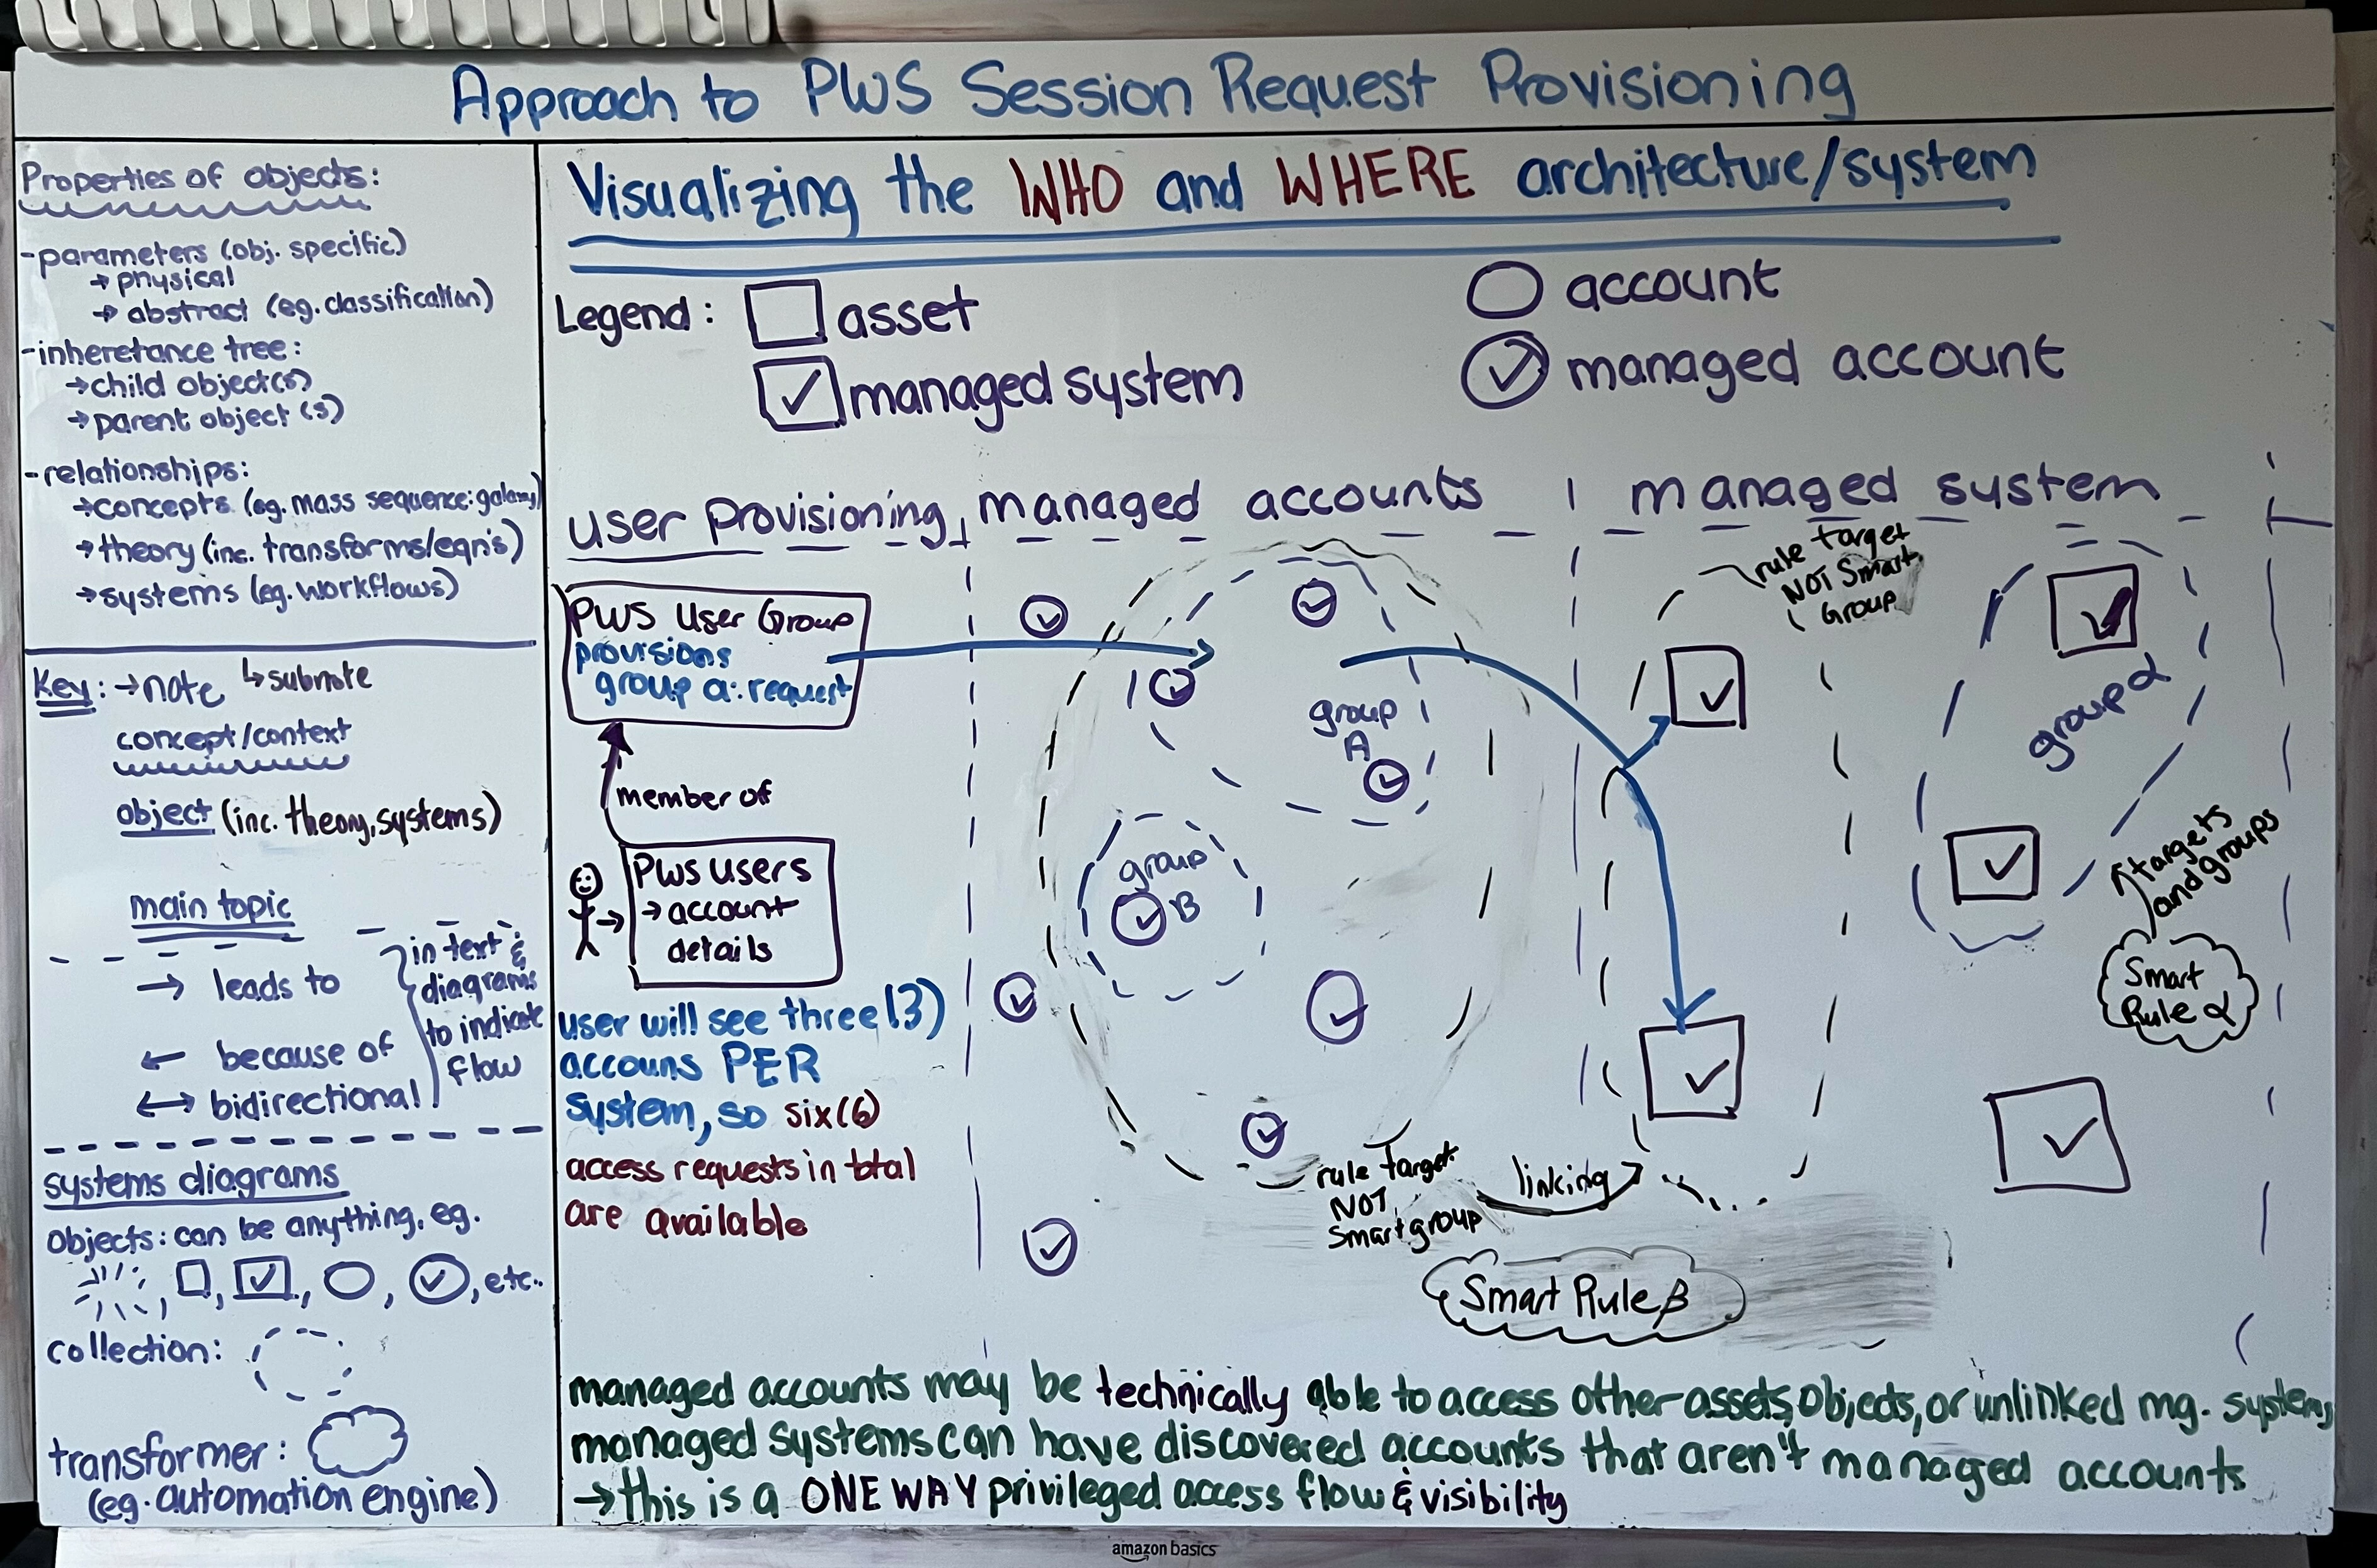 Approach to PWS Session Request Provisioning
Properties of objects:
-parameters (obj. specific)
→ physical
→ abstract (eg. classification)
-inheretance tree:
→child object(s)
→parent object (s)
-relationships:
→concepts (eg. mass sequence: galaxy)
→theory (inc. transforms/eqn's)
→systems (eg. workflows)
Key: →note ↳subnote
concept/context
object (inc. theory, systems)
main topic
→ leads to
← because of
↔ bidirectional
in text &
diagrams
to indicate
flow
systems diagrams
objects: can be anything, eg.
, , , , , etc..
collection:
transformer:
(eg. automation engine)
Visualizing the WHO and WHERE architecture/system
Legend: asset
managed system
account
managed account
user provisioning
managed accounts
managed system
PWS User Group
provisions
group a: request
member of
PWS users
→ account
details
user will see three (3)
accouns PER
system, so six (6)
access requests in total
are available
group
A
group
B
rule target
NOT
Smartgroup
linking
Smart Rule β
rule target
NOT Smart
Group
group α
targets
and groups
Smart
Rule α
managed accounts may be technically able to access other assets, objects, or unlinked mg. systems
managed systems can have discovered accounts that aren't managed accounts
→this is a ONE WAY privileged access flow & visibility
amazon basics